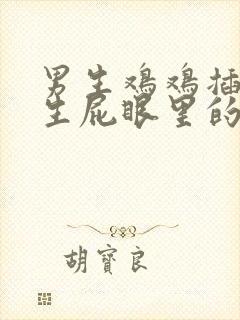 男生鸡鸡插
生屁眼里的
胡寶良